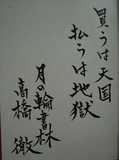 買うは天国
払うは地獄
月の輪書林
高橋徹